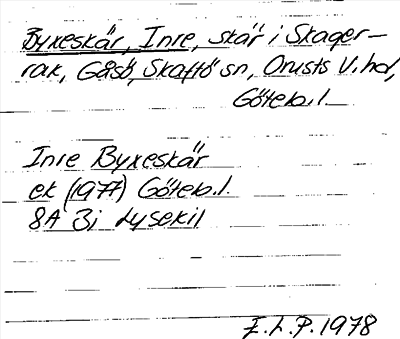 Byxeskär, Inre, skär i Skager-
rak, Gåsö, Skaftö sn, Orusts V. hd,
Göteb. l.
Inre Byxeskär
ek (1977) Göteb. l.
8A 3i Lysekil
E.L.P. 1978